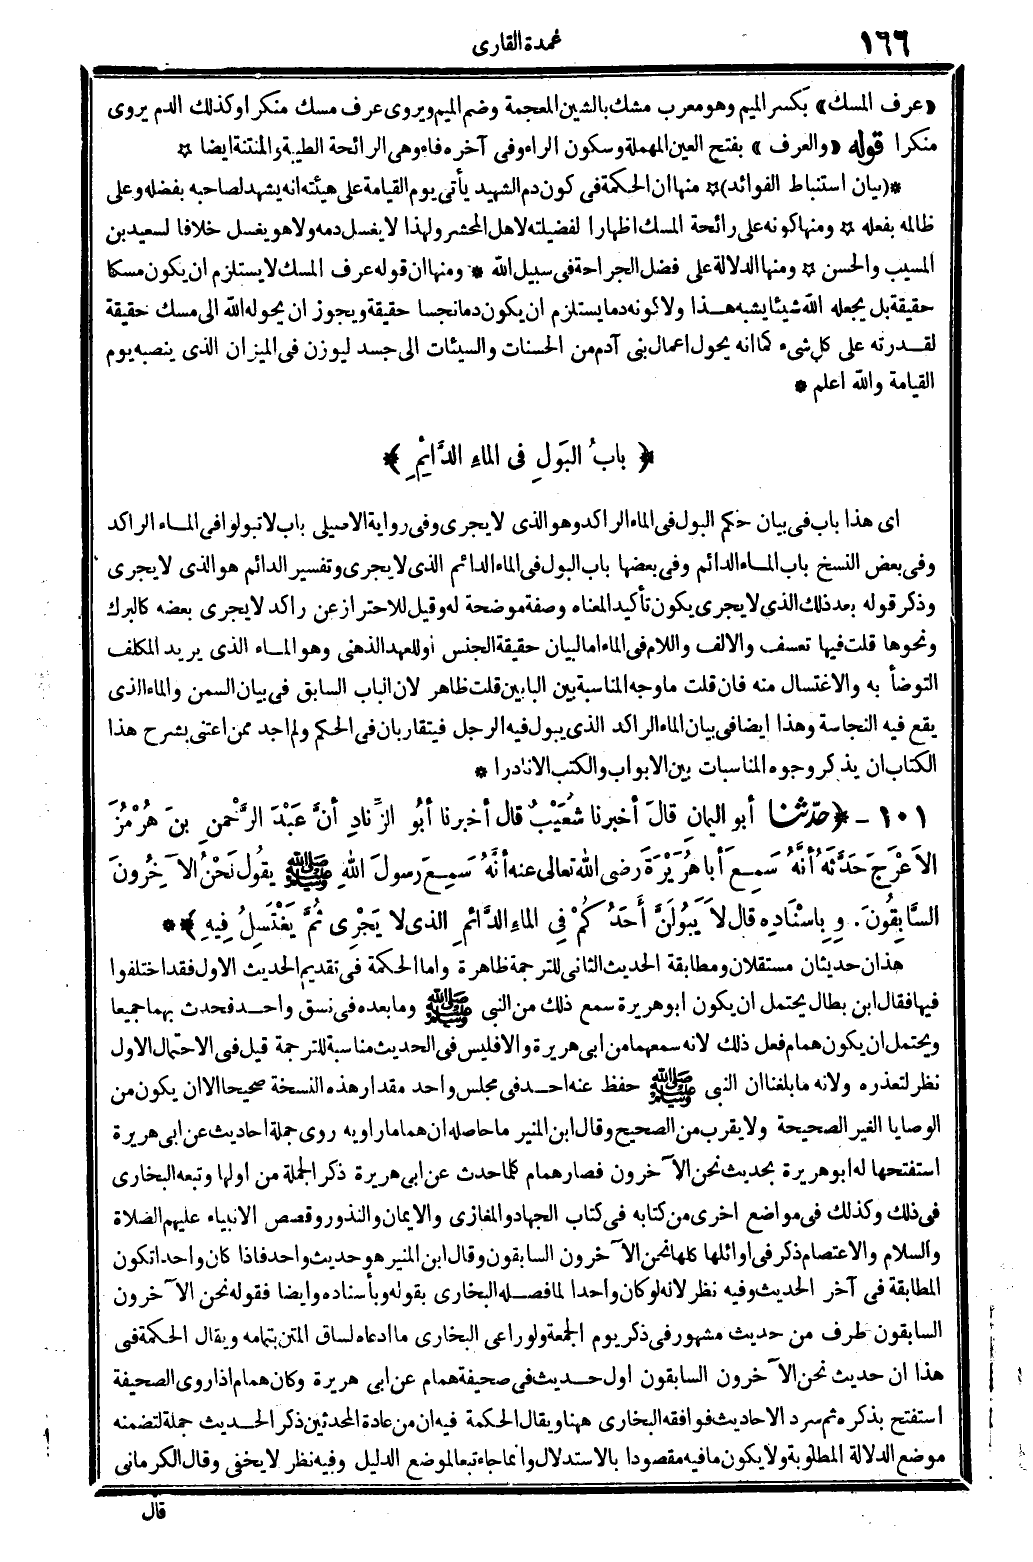 ١٦٦
عمدة القارى
«عرف المسك» بكسر الميم وهو معرب مشك بالشين المعجمة وضم الميم ويروى عرف مسك منكرا وكذلك الدم يروى
منكرا قوله «والعرف» بفتح العين المهملة وسكون الراء وفى آخره فاء وهى الرائحة الطيبة والمنتنة ايضا ☆
*(بيان استنباط الفوائد)☆ منها ان الحكمة فى كون دم الشهيد يأتى يوم القيامة على هيئته انه يشهد لصاحبه بفضله وعلى
ظالمه بفعله ☆ ومنها كونه على رائحة المسك اظهارا لفضيلته لاهل المحشر ولهذا لا يغسل دمه ولا هو يغسل خلافا لسعيد بن
المسيب والحسن ☆ ومنها الدلالة على فضل الجراحة فى سبيل الله * ومنها ان قوله عرف المسك لا يستلزم ان يكون مسكا
حقيقة بل يجعله الله شيئا يشبه هذا ولا كونه دما يستلزم ان يكون دما نجسا حقيقة ويجوز ان يحوله الله الى مسك حقيقة
لقدرته على كل شىء كما انه يحول اعمال بنى آدم من الحسنات والسيئات الى جسد ليوزن فى الميزان الذى ينصبه يوم
القيامة والله اعلم *
﴿ بابُ البَوْلِ فِى الماءِ الدَّائِمِ ﴾
اى هذا باب فى بيان حكم البول فى الماء الراكد وهو الذى لا يجرى وفى رواية الاصيلى باب لا تبولوا فى الماء الراكد
وفى بعض النسخ باب الماء الدائم وفى بعضها باب البول فى الماء الدائم الذى لا يجرى وتفسير الدائم هو الذى لا يجرى
وذكر قوله بعد ذلك الذى لا يجرى يكون تأكيدا لمعناه وصفة موضحة له وقيل للاحتراز عن راكد لا يجرى بعضه كالبرك
ونحوها قلت فيها تعسف والالف واللام فى الماء اما لبيان حقيقة الجنس او للعهد الذهنى وهو الماء الذى يريد المكلف
التوضأ به والاغتسال منه فان قلت ما وجه المناسبة بين البابين قلت ظاهر لان الباب السابق فى بيان السمن والماء الذى
يقع فيه النجاسة وهذا ايضا فى بيان الماء الراكد الذى يبول فيه الرجل فيتقاربان فى الحكم ولم اجد ممن اعتنى بشرح هذا
الكتاب ان يذكر وجوه المناسبات بين الابواب والكتب الا نادرا *
١٠١ - ﴿حدّثنا أبو اليمان قالَ أخبرنا شُعَيْبٌ قال أخبرنا أبُو الزِّنادِ أنَّ عَبْدَ الرَّحْمنِ بنَ هُرْمُزَ
الاَعْرَجَ حَدَّثَهُ أنَّهُ سَمِعَ أباهُرَيْرَةَ رضى الله تعالى عنه أنَّهُ سَمِعَ رسولَ اللهِ ﷺ يقُولُ نَحْنُ الآخِرُونَ
السَّابِقُونَ. وبِاِسْنَادِهِ قال لاَ يَبُولَنَّ أَحَدُكُمْ فِى الماءِ الدَّائمِ الذى لا يَجْرِى ثُمَّ يَغْتَسِلُ فِيهِ﴾ **
هذان حديثان مستقلان ومطابقة الحديث الثانى للترجمة ظاهرة واما الحكمة فى تقديم الحديث الاول فقد اختلفوا
فيها فقال ابن بطال يحتمل ان يكون ابو هريرة سمع ذلك من النبى ﷺ وما بعده فى نسق واحد فحدث بهما جميعا
ويحتمل ان يكون همام فعل ذلك لانه سمعهما من ابى هريرة والا فليس فى الحديث مناسبة للترجمة قيل فى الاحتمال الاول
نظر لتعذره ولانه ما بلغنا ان النبى ﷺ حفظ عنه احد فى مجلس واحد مقدار هذه النسخة صحيحا الا ان يكون من
الوصايا الغير الصحيحة ولا يقرب من الصحيح وقال ابن المنير ما حاصله ان هماما راويه روى جملة احاديث عن ابى هريرة
استفتحها له ابو هريرة بحديث نحن الآخرون فصار همام كلما حدث عن ابى هريرة ذكر الجملة من اولها وتبعه البخارى
فى ذلك وكذلك فى مواضع اخرى من كتابه فى كتاب الجهاد والمغازى والايمان والنذور وقصص الانبياء عليهم الصلاة
والسلام والاعتصام ذكر فى اوائلها كلها نحن الآخرون السابقون وقال ابن المنير هو حديث واحد فاذا كان واحدا تكون
المطابقة فى آخر الحديث وفيه نظر لانه لو كان واحدا لما فصله البخارى بقوله وبأسناده وايضا فقوله نحن الآخرون
السابقون طرف من حديث مشهور فى ذكر يوم الجمعة ولو راعى البخارى ما ادعاه لساق المتن بتمامه ويقال الحكمة فى
هذا ان حديث نحن الآخرون السابقون اول حديث فى صحيفة همام عن ابى هريرة وكان همام اذا روى الصحيفة
استفتح بذكره ثم سرد الاحاديث فوافقه البخارى ههنا ويقال الحكمة فيه ان من عادة المحدثين ذكر الحديث جملة لتضمنه
موضع الدلالة المطلوبة ولا يكون ما فيه مقصودا بالاستدلال وانما جاء تبعا لموضع الدليل وفيه نظر لا يخفى وقال الكرمانى
قال